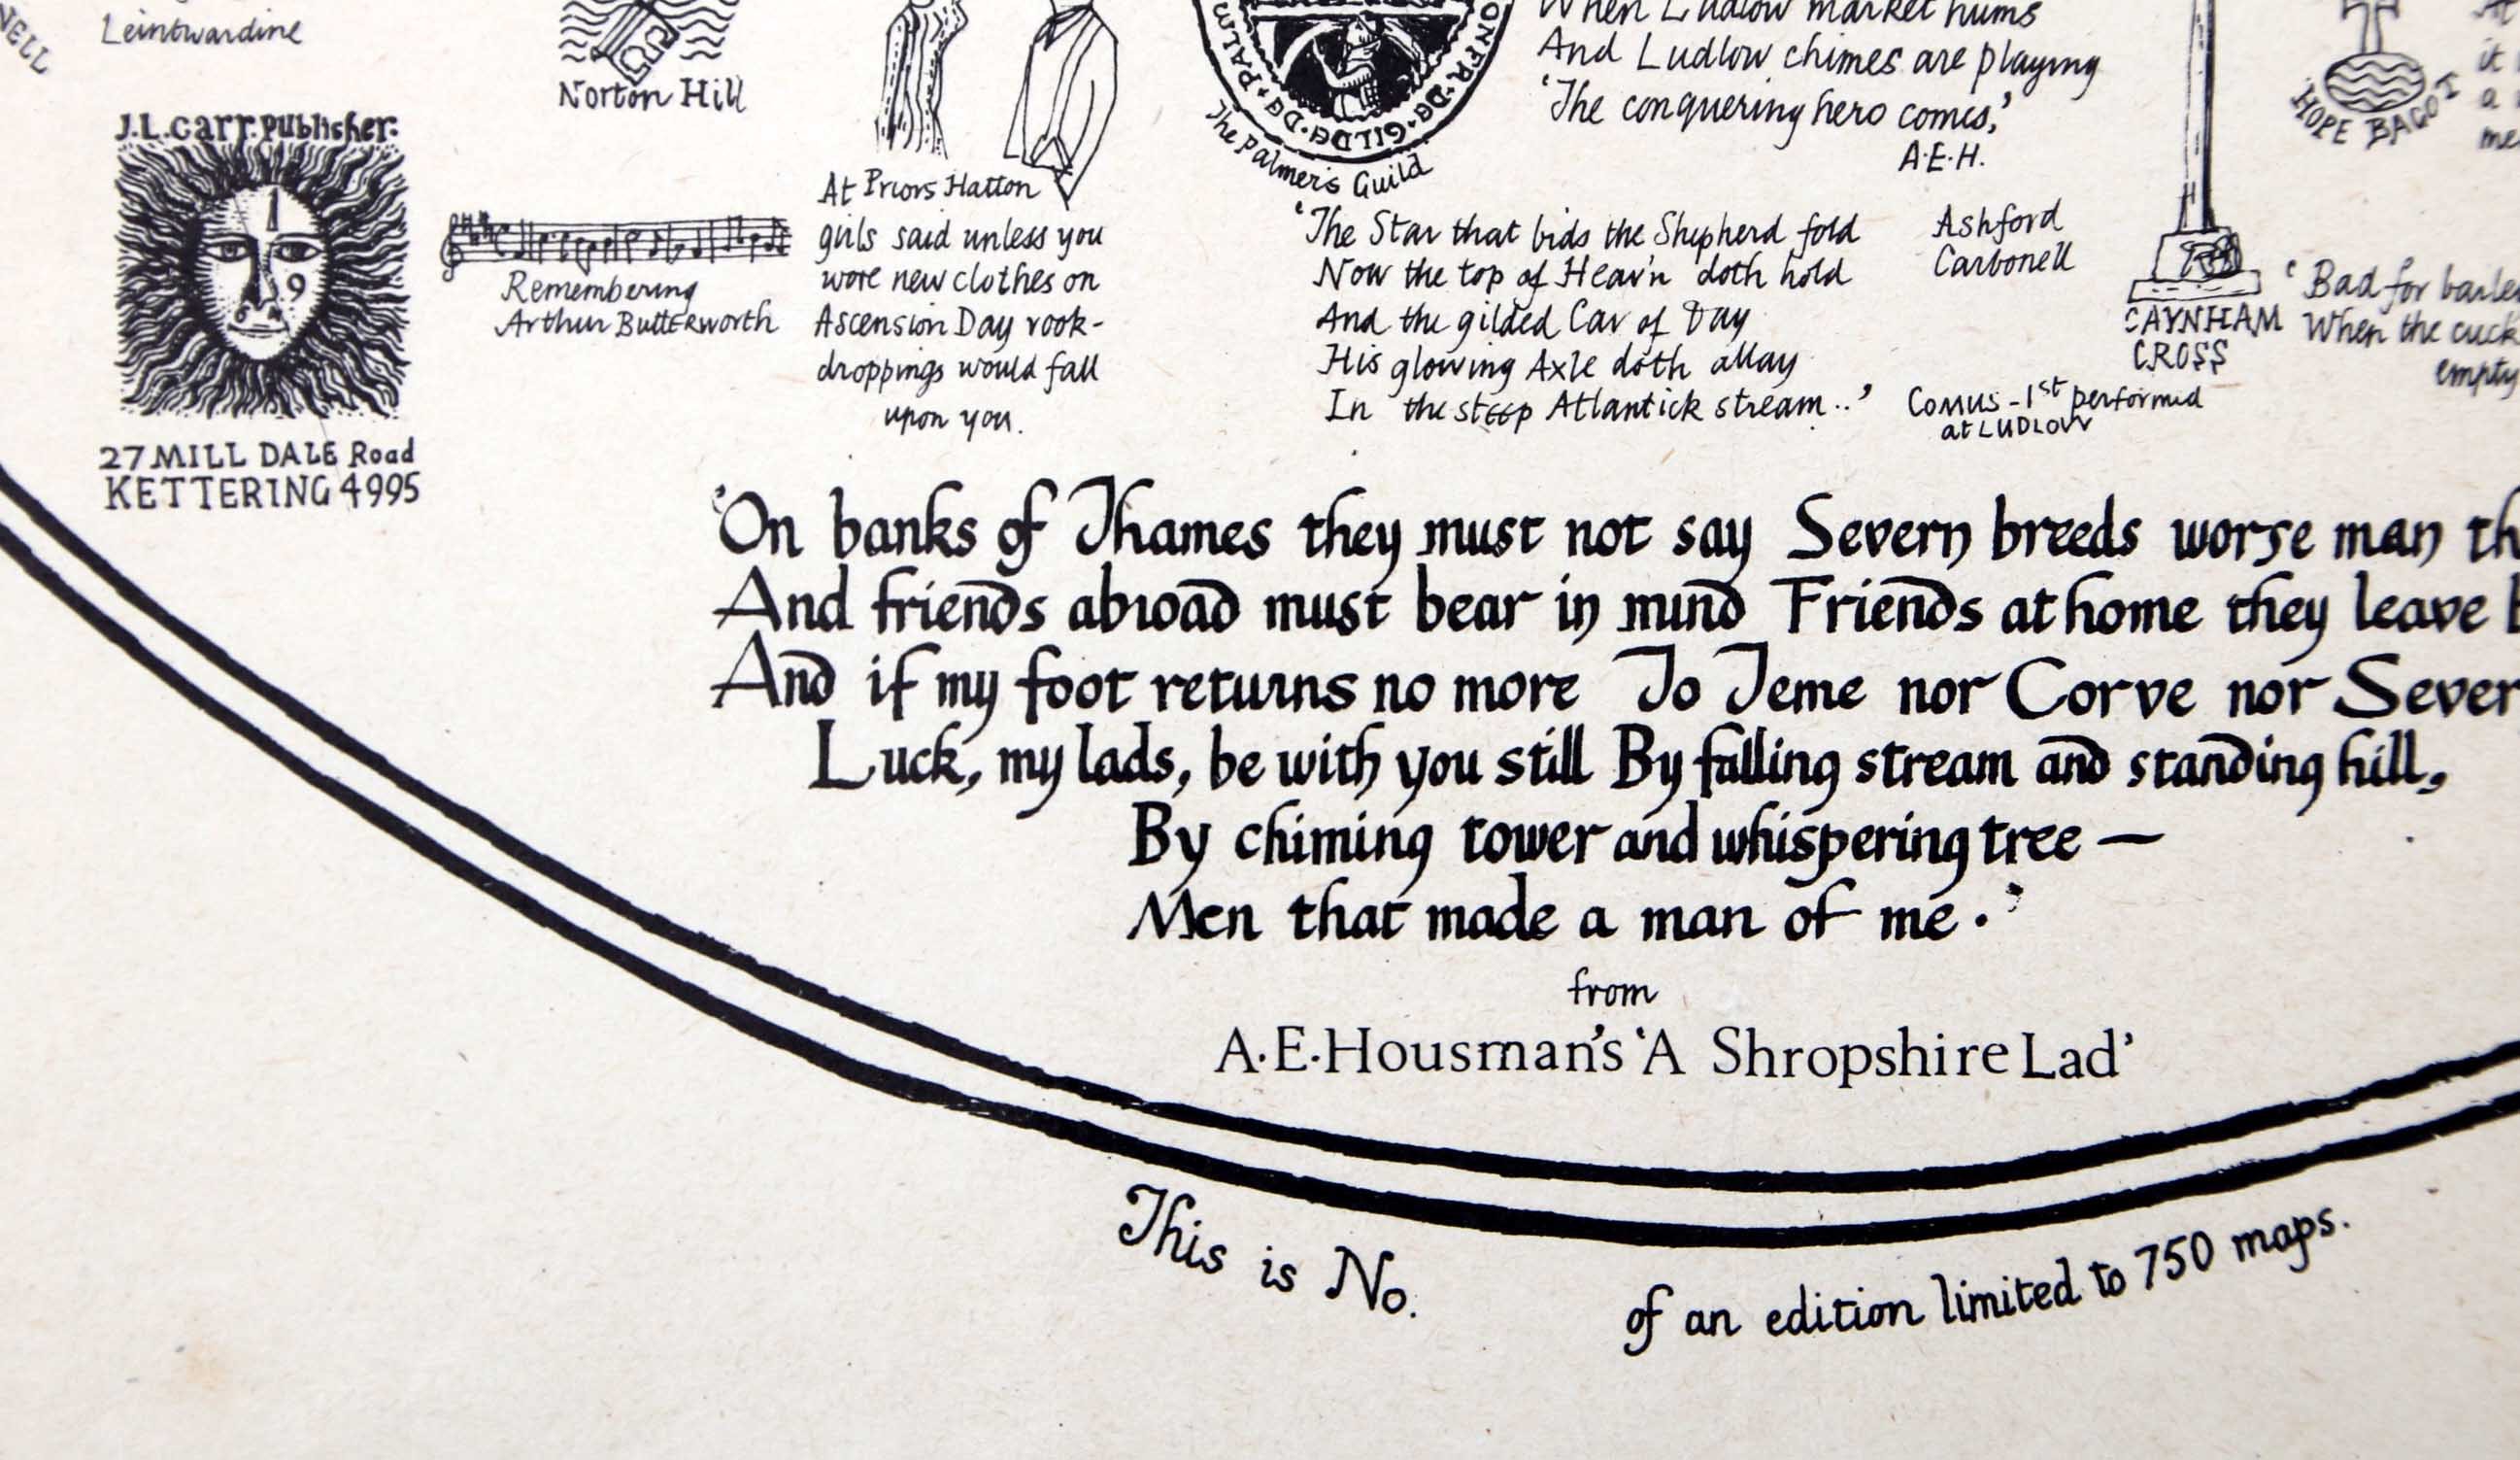 NELL
Leintwardine
Norton Hill
J.L.Carr.Publisher:
1
9
27 MILL DALE Road
KETTERING 4995
Remembering
Arthur Butterworth
At Priors Hatton
girls said unless you
wore new clothes on
Ascension Day rook-
droppings would fall
upon you.
PALM
ONFR·DE·GILDE
The Palmer's Guild
When Ludlow market hums
And Ludlow chimes are playing
'The conquering hero comes,'
A.E.H.
'The Star that bids the Shepherd fold
Now the top of Heav'n doth hold
And the gilded Car of Day
His glowing Axle doth allay
In the steep Atlantick stream..'
Comus - 1st performed
at LUDLOW
Ashford
Carbonell
CAYNHAM
CROSS
HOPE BAGOT
it
a
me
'Bad for barle
When the cuck
empty
'On banks of Thames they must not say Severn breeds worse man th
And friends abroad must bear in mind Friends at home they leave b
And if my foot returns no more To Teme nor Corve nor Sever
Luck, my lads, be with you still By falling stream and standing hill,
By chiming tower and whispering tree —
Men that made a man of me.'
from
A.E.Housman's 'A Shropshire Lad'
This is No. of an edition limited to 750 maps.